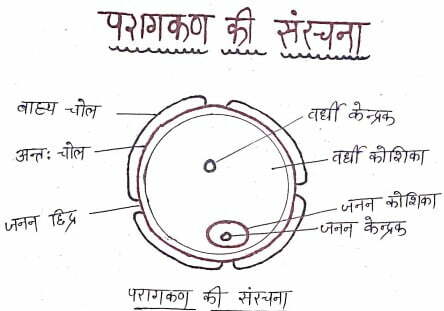 परागकण की संरचना
बाह्य चोल
अन्तः चोल
जनन छिद्र
वर्धी केन्द्रक
वर्धी कोशिका
जनन कोशिका
जनन केन्द्रक
परागकण की संरचना